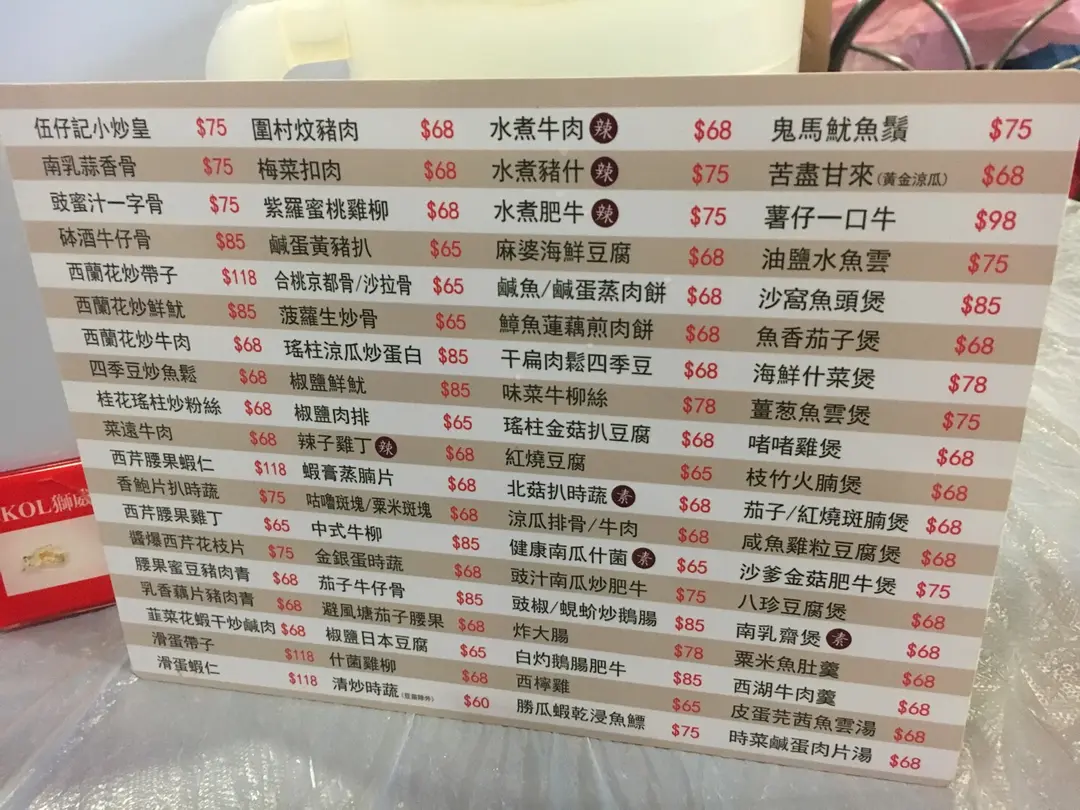 伍仔記小炒皇 $75
南乳蒜香骨 $75
豉蜜汁一字骨 $75
砵酒牛仔骨 $85
西蘭花炒帶子 $118
西蘭花炒鮮魷 $85
西蘭花炒牛肉 $68
四季豆炒魚鬆 $68
桂花瑤柱炒粉絲 $68
菜遠牛肉 $68
西芹腰果蝦仁 $118
香鮑片扒時蔬 $75
西芹腰果雞丁 $65
醬爆西芹花枝片 $75
腰果蜜豆豬肉青 $68
乳香藕片豬肉青 $68
韮菜花蝦干炒鹹肉 $68
滑蛋帶子 $118
滑蛋蝦仁 $118
圍村炆豬肉 $68
梅菜扣肉 $68
紫羅蜜桃雞柳 $68
鹹蛋黃豬扒 $65
合桃京都骨/沙拉骨 $65
菠蘿生炒骨 $65
瑤柱涼瓜炒蛋白 $85
椒鹽鮮魷 $85
椒鹽肉排 $65
辣子雞丁 辣 $68
蝦膏蒸腩片 $68
咕嚕斑塊/粟米斑塊 $68
中式牛柳 $85
金銀蛋時蔬 $68
茄子牛仔骨 $85
避風塘茄子腰果 $68
椒鹽日本豆腐 $65
什菌雞柳 $68
清炒時蔬 $60
水煮牛肉 辣 $68
水煮豬什 辣 $75
水煮肥牛 辣 $75
麻婆海鮮豆腐 $68
鹹魚/鹹蛋蒸肉餅 $68
鱆魚蓮藕煎肉餅 $68
干扁肉鬆四季豆 $68
味菜牛柳絲 $78
瑤柱金菇扒豆腐 $68
紅燒豆腐 $65
北菇扒時蔬 素 $68
涼瓜排骨/牛肉 $68
健康南瓜什菌 素 $65
豉汁南瓜炒肥牛 $75
豉椒/蜆蚧炒鵝腸 $85
炸大腸 $78
白灼鵝腸肥牛 $85
西檸雞 $65
勝瓜蝦乾浸魚鰾 $75
鬼馬魷魚鬚 $75
苦盡甘來(黃金涼瓜) $68
薯仔一口牛 $98
油鹽水魚雲 $75
沙窩魚頭煲 $85
魚香茄子煲 $68
海鮮什菜煲 $78
薑葱魚雲煲 $75
啫啫雞煲 $68
枝竹火腩煲 $68
茄子/紅燒斑腩煲 $68
咸魚雞粒豆腐煲 $68
沙爹金菇肥牛煲 $75
八珍豆腐煲 $68
南乳齋煲 素 $68
粟米魚肚羹 $68
西湖牛肉羹 $68
皮蛋芫茜魚雲湯 $68
時菜鹹蛋肉片湯 $68
KOL獅威